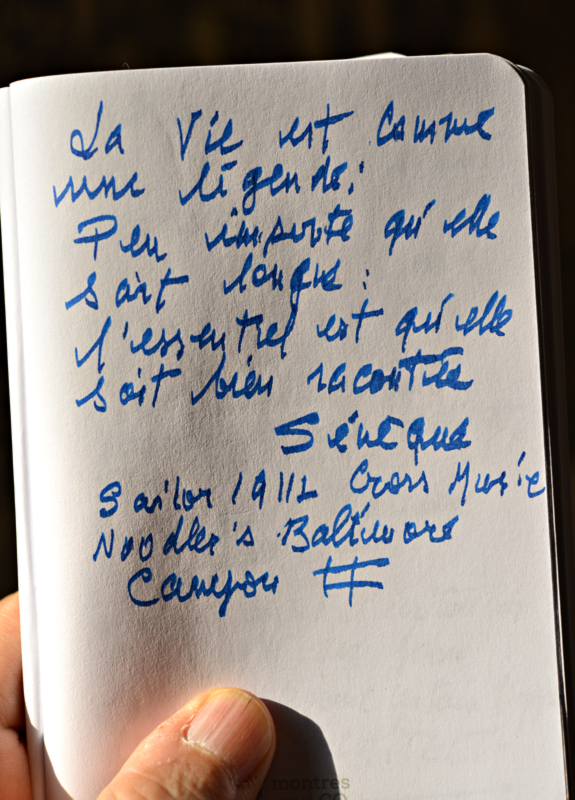 La Vie est comme
une légende:
Peu importe qu'elle
soit longue:
l'essentiel est qu'elle
soit bien racontée
Sénèque
Sailor 1911L Cross Music
Noodler's Baltimore
Canyon #
montres